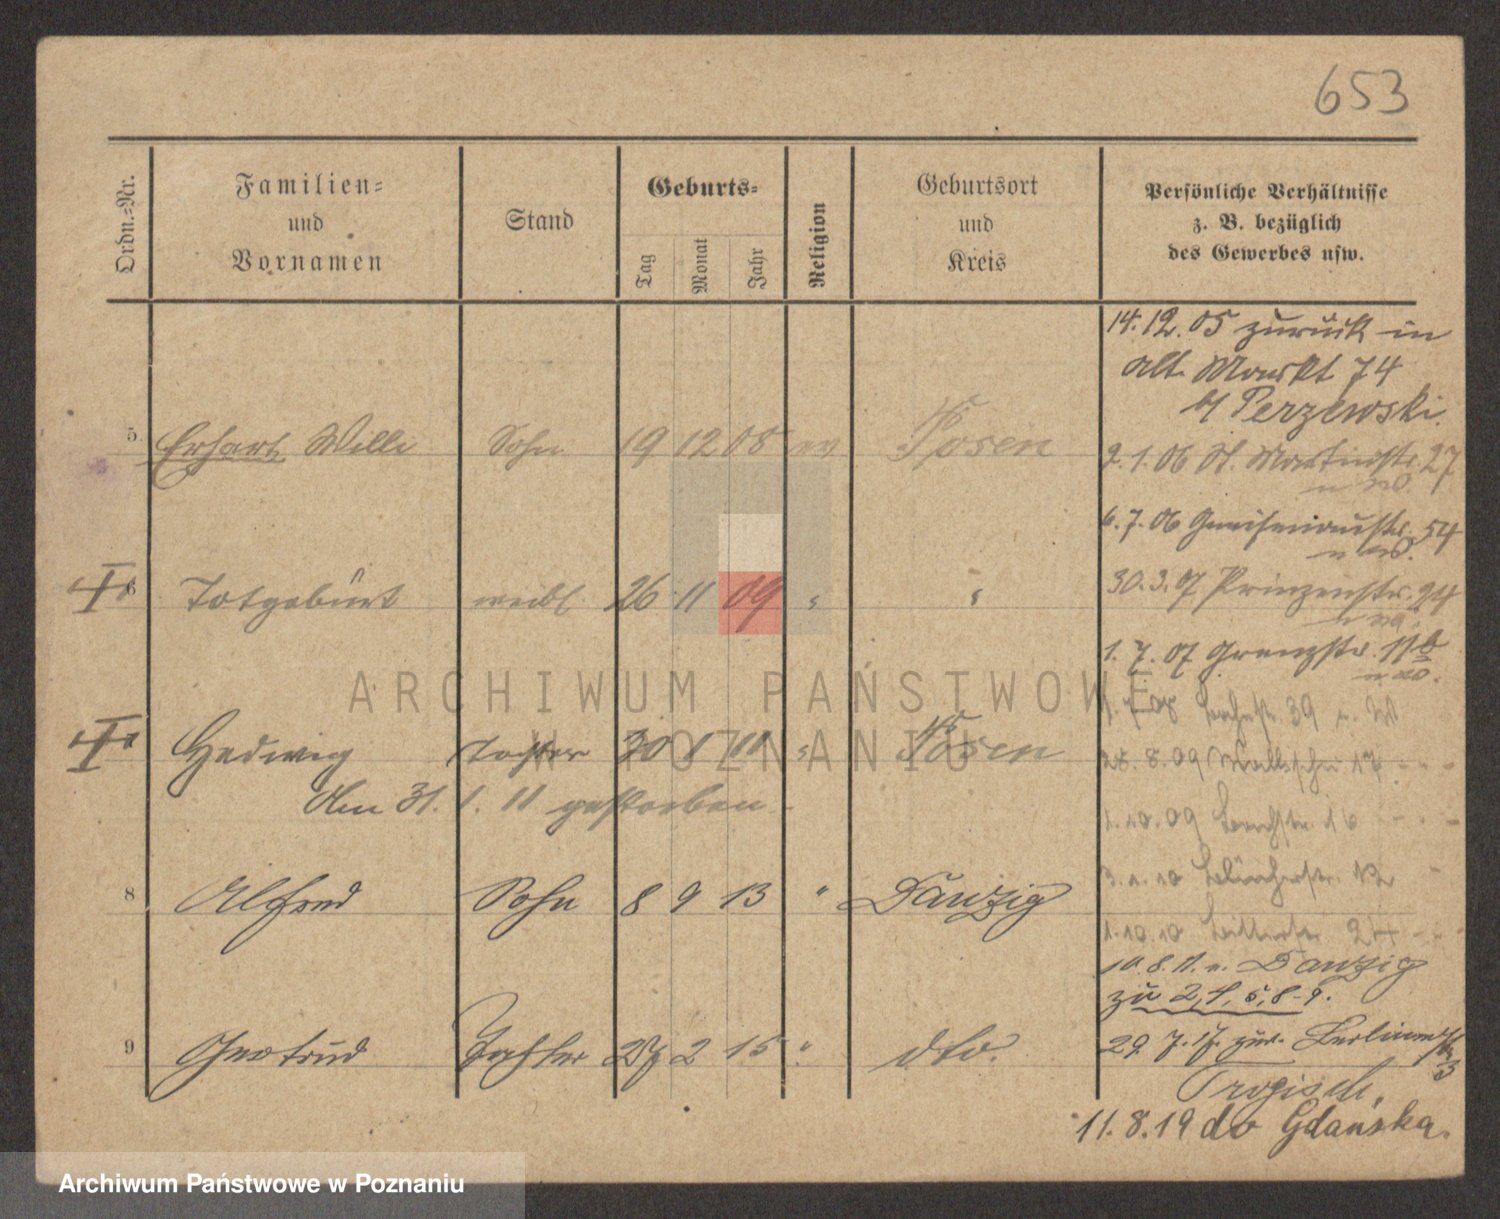 653
Ordn.-Nr.
Familien-
und
Vornamen
Stand
Geburts-
Tag
Monat
Jahr
Religion
Geburtsort
und
Kreis
Persönliche Verhältnisse
z. B. bezüglich
des Gewerbes usw.
14. 12. 05 zurück in
Alt. Markt 74
b/ Perzewski.
5. Erhart Willi Sohn 19 12 08 ev Posen
2. 1. 06 St. Martinstr. 27
6. 7. 06 Gneisenaustr. 54
6 Totgeburt weibl. 26 11 09 " "
30. 3. 07 Prinzenstr. 24
1. 7. 07 Grenzstr. 11b
39
Hedwig Tochter 30 1 11 " Posen
Am 31. 1. 11 gestorben
28. 8. 09 17
1. 10. 09 16
8 Alfred Sohn 8 9 13 " Danzig
1. 10. 10 24
10. 8. 11. n. Danzig
zu 2, 4, 5, 8-9.
9 Gertrud Tochter 27 2 15 " dto.
29. 7. 17. zur.
11. 8. 19 do Gdańska.
ARCHIWUM PAŃSTWOWE
W POZNANIU
Archiwum Państwowe w Poznaniu